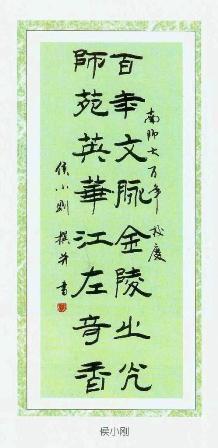 南师大百年校庆
百年文脈金陵之光
師苑英華江左奇香
侯小剛撰并書
侯小刚